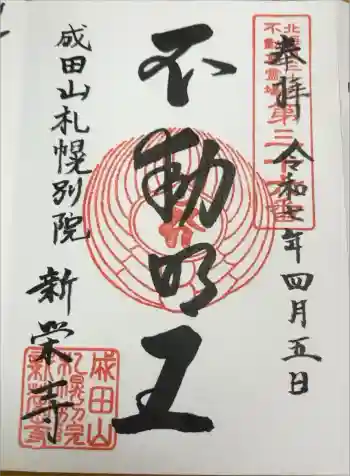 奉拝 令和七年四月五日
北海道三十六
不動尊霊場
第三十一番
不動明王
成田山札幌別院
新栄寺
成田山
札幌別院
新栄寺